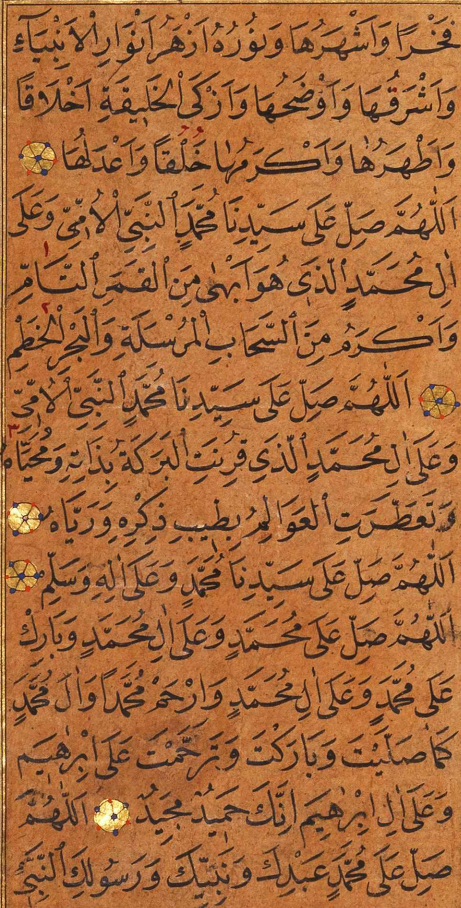 فَخْرًا وَاَشْهَرُهَا وَنُورُهُ اَزْهَرُ اَنْوَارِ الْاَنْبِيَآءِ
وَاَشْرَقُهَا وَاَوْضَحُهَا وَاَزْكَى الْخَلِيقَةِ اَخْلَاقًا
وَاَطْهَرُهَا وَاَكْرَمُهَا خَلْقًا وَاَعْدَلُهَا
اَللّٰهُمَّ صَلِّ عَلٰى سَيِّدِنَا مُحَمَّدٍ النَّبِيِّ الْاُمِّيِّ وَعَلٰى
اٰلِ مُحَمَّدٍ الَّذِي هُوَ اَبْهٰى مِنَ الْقَمَرِ التَّامِّ
وَاَكْرَمُ مِنَ السَّحَابِ الْمُرْسَلَةِ وَالْبَحْرِ الْخِضَمِّ
اَللّٰهُمَّ صَلِّ عَلٰى سَيِّدِنَا مُحَمَّدٍ النَّبِيِّ الْاُمِّيِّ
وَعَلٰى اٰلِ مُحَمَّدٍ الَّذِي قُرِنَتِ الْبَرَكَةُ بِذَاتِهِ وَمُحَيَّاهُ
وَتَعَطَّرَتِ الْعَوَالِمُ بِطِيبِ ذِكْرِهِ وَرَيَّاهُ
اَللّٰهُمَّ صَلِّ عَلٰى سَيِّدِنَا مُحَمَّدٍ وَعَلٰى اٰلِهِ وَسَلِّمْ
اَللّٰهُمَّ صَلِّ عَلٰى مُحَمَّدٍ وَعَلٰى اٰلِ مُحَمَّدٍ وَبَارِكْ
عَلٰى مُحَمَّدٍ وَعَلٰى اٰلِ مُحَمَّدٍ وَارْحَمْ مُحَمَّدًا وَاٰلَ مُحَمَّدٍ
كَمَا صَلَّيْتَ وَبَارَكْتَ وَتَرَحَّمْتَ عَلٰى اِبْرٰهِيمَ
وَعَلٰى اٰلِ اِبْرٰهِيمَ اِنَّكَ حَمِيدٌ مَجِيدٌ اَللّٰهُمَّ
صَلِّ عَلٰى مُحَمَّدٍ عَبْدِكَ وَنَبِيِّكَ وَرَسُولِكَ النَّبِيِّ